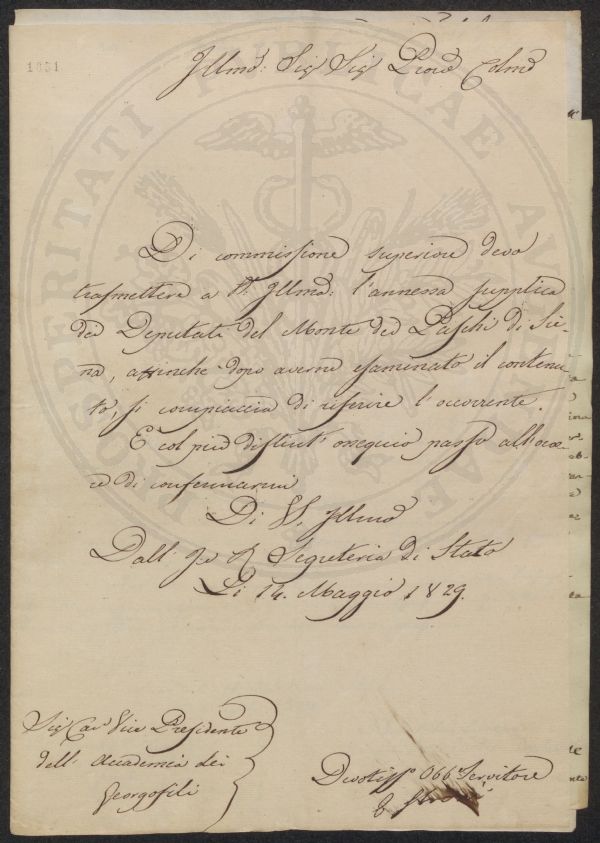 1051
Illmo: Sig Sig Prone Colmo
Di commissione superiore devo
trasmettere a V. Illma: l'annessa supplica
dei Deputati del Monte dei Paschi di Sie-
na, affinche dopo averne esaminato il contenu
to, si compiaccia di riferire l'occorrente.
E col più distint.o ossequio passo all'ono-
re di confermarmi
Di V. Illma
Dall' I. e R. Segreteria di Stato
Li 14. Maggio 1829.
Sig Cav Vice Presidente
dell' Accademia dei
Georgofili
Devotiss.o Obb.o Servitore
PROSPERITATI PUBLICAE AUGENDAE